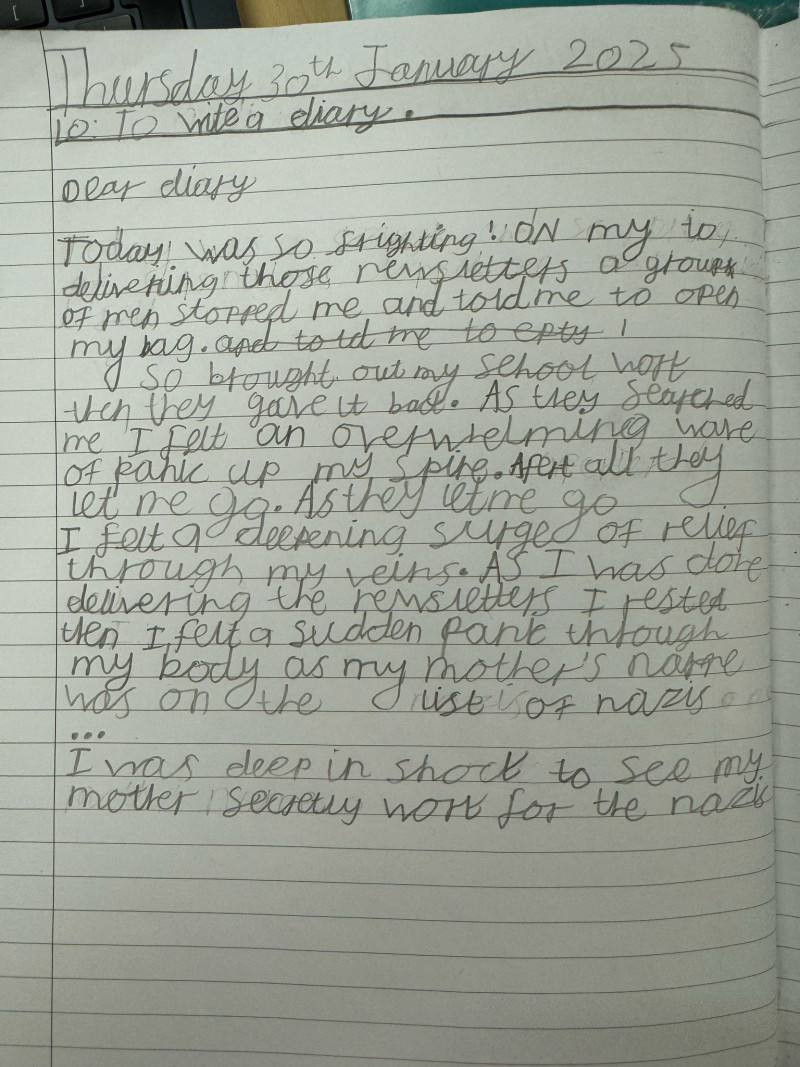 Thursday 30th January 2025
LO: To write a diary.
Dear diary
Today was so frighting! ON my to
delivering those newsletters a group
of men stopped me and told me to open
my bag. and told me to epty
So brought out my school work
then they gave it back. As they searched
me I felt an overwelming wave
of panic up my spine. Afert all they
let me go. As they let me go
I felt a deepening surge of relief
through my veins. AS I was done
delivering the newsletters I rested
then I felt a sudden panic through
my body as my mother's name
was on the list of nazis
...
I was deep in shock to see my
mother secretly work for the nazis